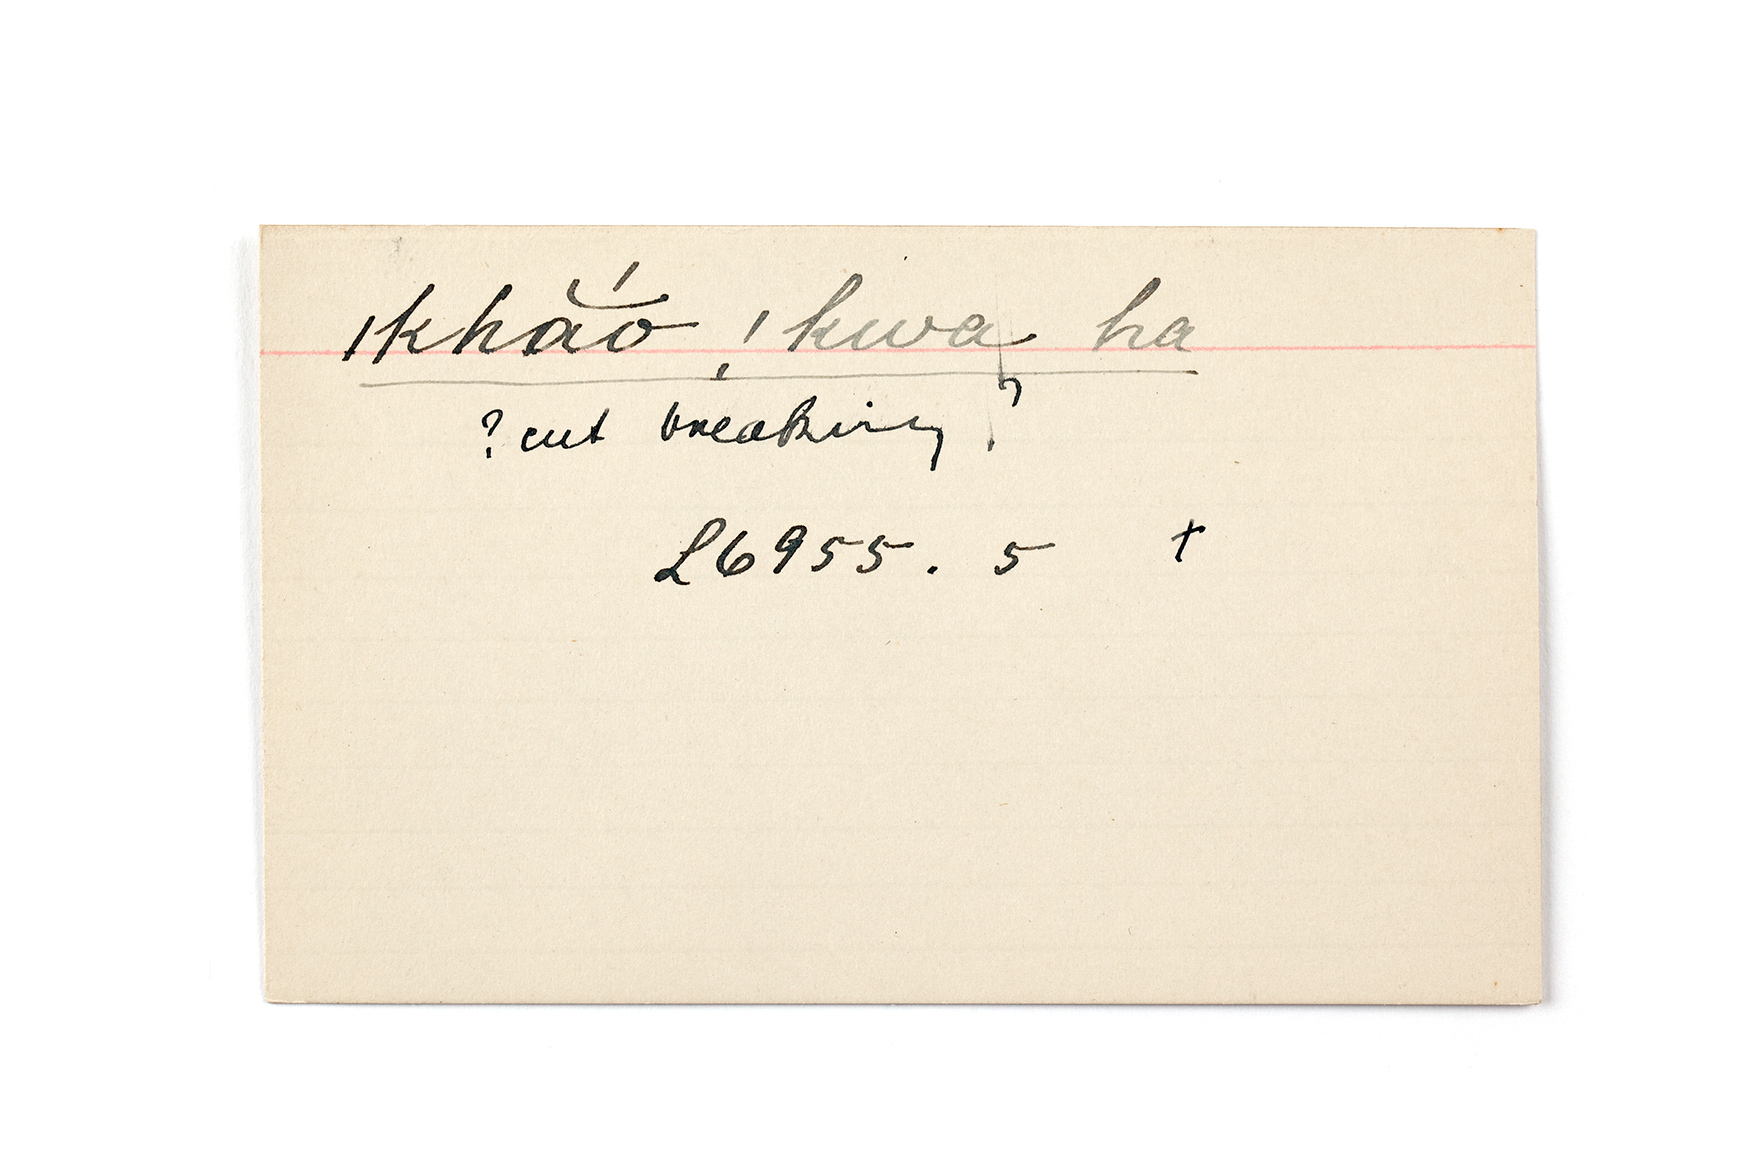 ǀkhā̆́o ǃkwa ha
? cut breaking
L6955. 5 +